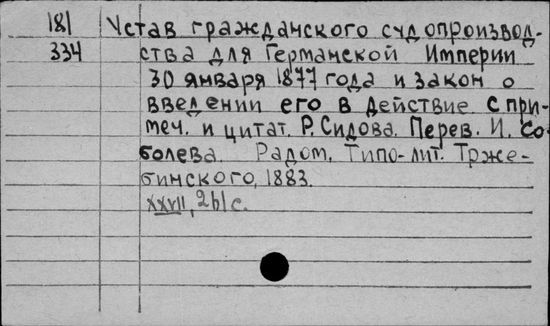 181 Устав гражданского судопроизвод-
334 ства для Германской Империи
30 января 1877 года и закон о
введении его в действие с при-
меч. и цитат. Р. Сидова. Перев. И. Со-
болева. Радом, Типо-лит. Трже-
бинского, 1883.
XXVII, 261 с.